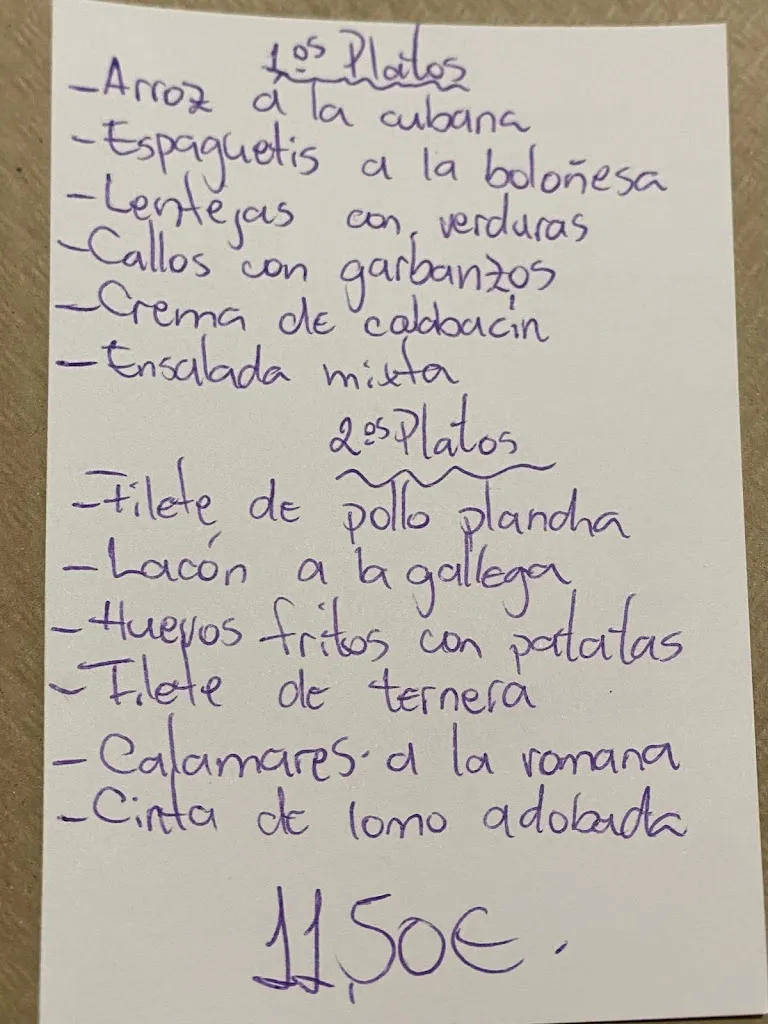 1os Platos
- Arroz a la cubana
- Espaguetis a la boloñesa
- Lentejas con verduras
- Callos con garbanzos
- Crema de calabacín
- Ensalada mixta
2os Platos
- Filete de pollo plancha
- Lacón a la gallega
- Huevos fritos con patatas
- Filete de ternera
- Calamares a la romana
- Cinta de lomo adobada
11,50€.